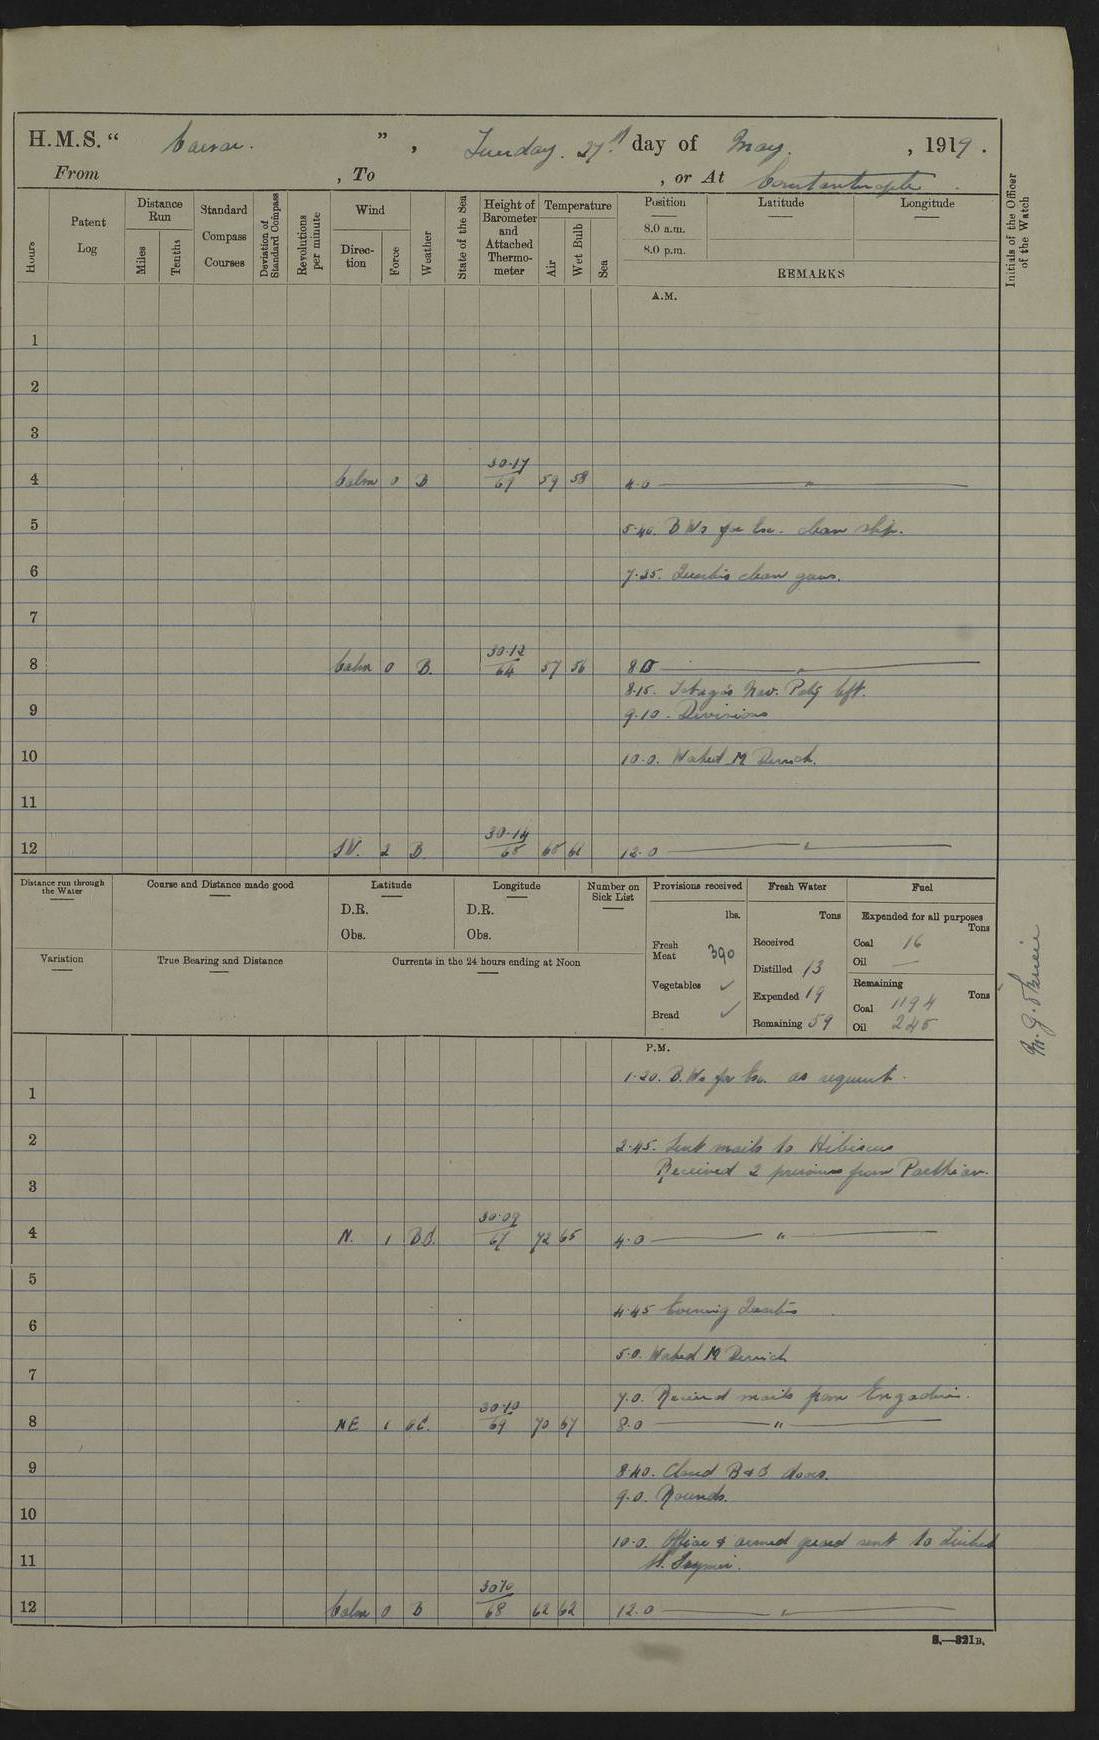 H.M.S. “ Caesar. ” , Tuesday. 27th day of May. , 1919.
From , To , or At Constantinople.
Hours
Patent Log
Distance Run
Miles
Tenths
Standard Compass Courses
Deviation of Standard Compass
Revolutions per minute
Wind
Direction
Force
Weather
State of the Sea
Height of Barometer and Attached Thermometer
Temperature
Air
Wet Bulb
Sea
Position Latitude Longitude
8.0 a.m.
8.0 p.m.
REMARKS
Initials of the Officer of the Watch
A.M.
1
2
3
4 Calm 0 B 30·17 59 58 4·0 "
5 5·40. clean ship.
6 7·35. clean guns.
7
8 Calm 0 B. 30·12 64 57 56 8·0 "
8·15. Nav. Party left.
9 9·10. Divisions
10 10·0. M Derrick.
11
12 2 B 30·14 12·0 "
Distance run through the Water
Course and Distance made good
Latitude
D.R.
Obs.
Longitude
D.R.
Obs.
Number on Sick List
Variation
True Bearing and Distance
Currents in the 24 hours ending at Noon
Provisions received
lbs.
Fresh Meat 390
Vegetables ✓
Bread ✓
Fresh Water
Tons
Received
Distilled 13
Expended 19
Remaining 59
Fuel
Expended for all purposes
Tons
Coal 16
Oil —
Remaining
Tons
Coal 1194
Oil 245
P.M.
1·20. as requisite.
1
2 2·45. Sent mails to Hibiscus
Received 2 prisoners from Parthian.
3
4 N. 1 30·09 67 72 65 4·0 "
5
4·45 Evening Quarters
6
5·0. M Derrick
7
7·0. Received mails from Engadine.
8 NE 1 30·10 69 70 67 8·0 "
9 8·40. Closed B & C doors.
9·0. Rounds.
10
10·0. Officer & armed guard sent to
11
12 Calm 0 B 68 62 62 12·0 "
S.—321B.